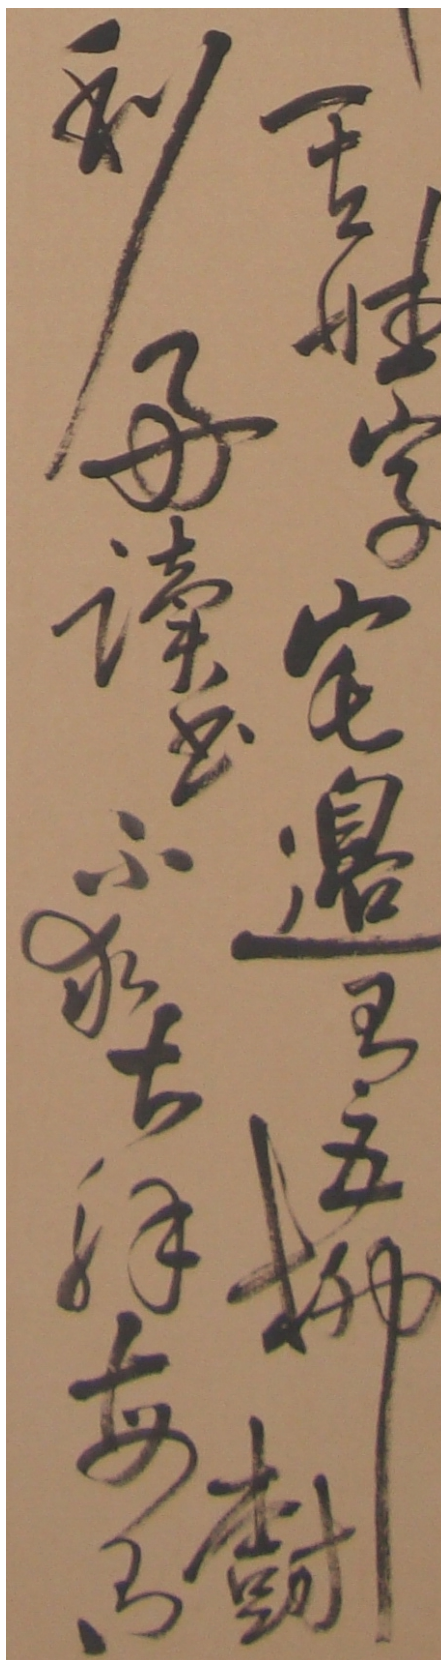 其姓字宅邊有五柳樹
利好讀書不求甚解每有